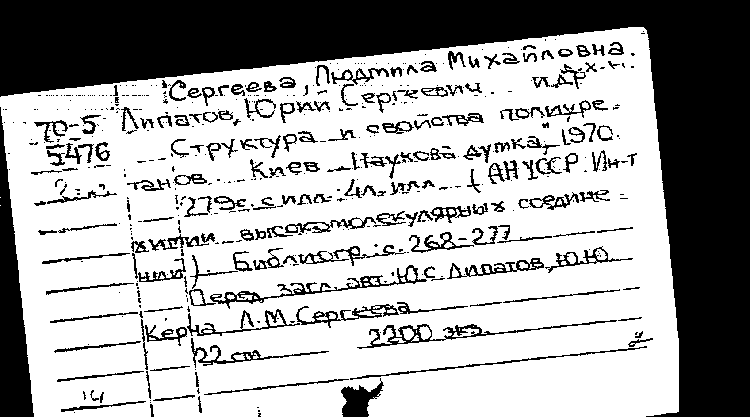 Сергеева, Людмила Михайловна.
70-5 Липатов, Юрий Сергеевич и др
5476 Структура и свойства полиуре-
2 экз танов. Киев "Наукова думка", 1970.
279 с. с илл.; 4 л. илл. (АН УССР. Ин-т
химии высокомолекулярных соедине-
ний). Библиогр.: с. 268-277
Перед загл. авт.: Ю.С. Липатов, Ю.Ю.
Керча, Л.М. Сергеева
22 см 2200 экз.